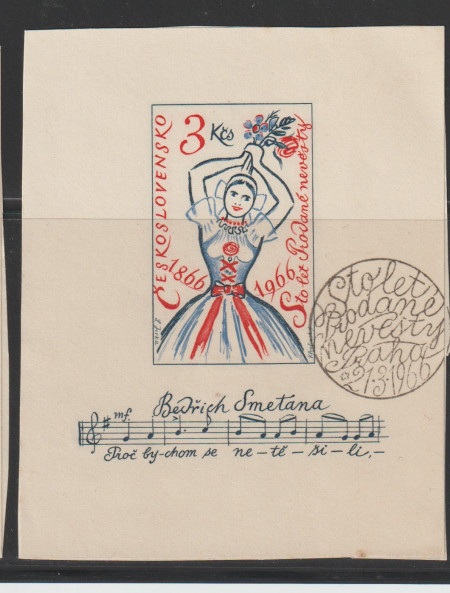 3 Kčs
ČESKOSLOVENSKO
1866
1966
Sto let Prodané nevěsty
Bedřich Smetana
mf.
Proč by-chom se ne-tě-ši-li,-
Sto let
Prodané
nevěsty
Praha
21.3.1966